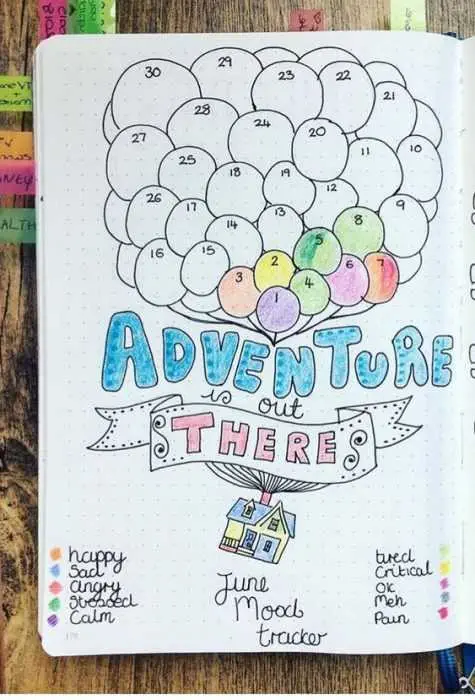 30 29 23 22 21
28 24 20
27 25 18 19 11 10
26 17 14 13 12 9
16 15 8
3 2 5 6 7
1 4
ADVENTURE
is out
THERE
happy
Sad
angry
Stressed
Calm
June
Mood
tracker
tired
Critical
Ok
Meh
Pain